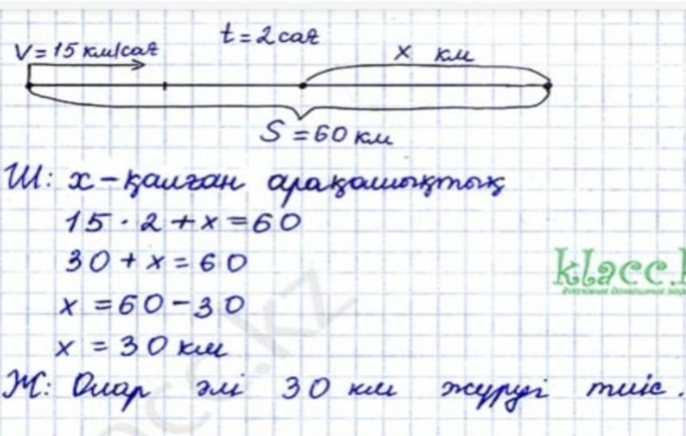 t = 2 сағ
V = 15 км/сағ
x км
S = 60 км
Ш: x – қалған арақашықтық
15 · 2 + x = 60
30 + x = 60
x = 60 – 30
x = 30 км
Ж: Олар әлі 30 км жүруі тиіс.
klacc.k
готовые домашние зад